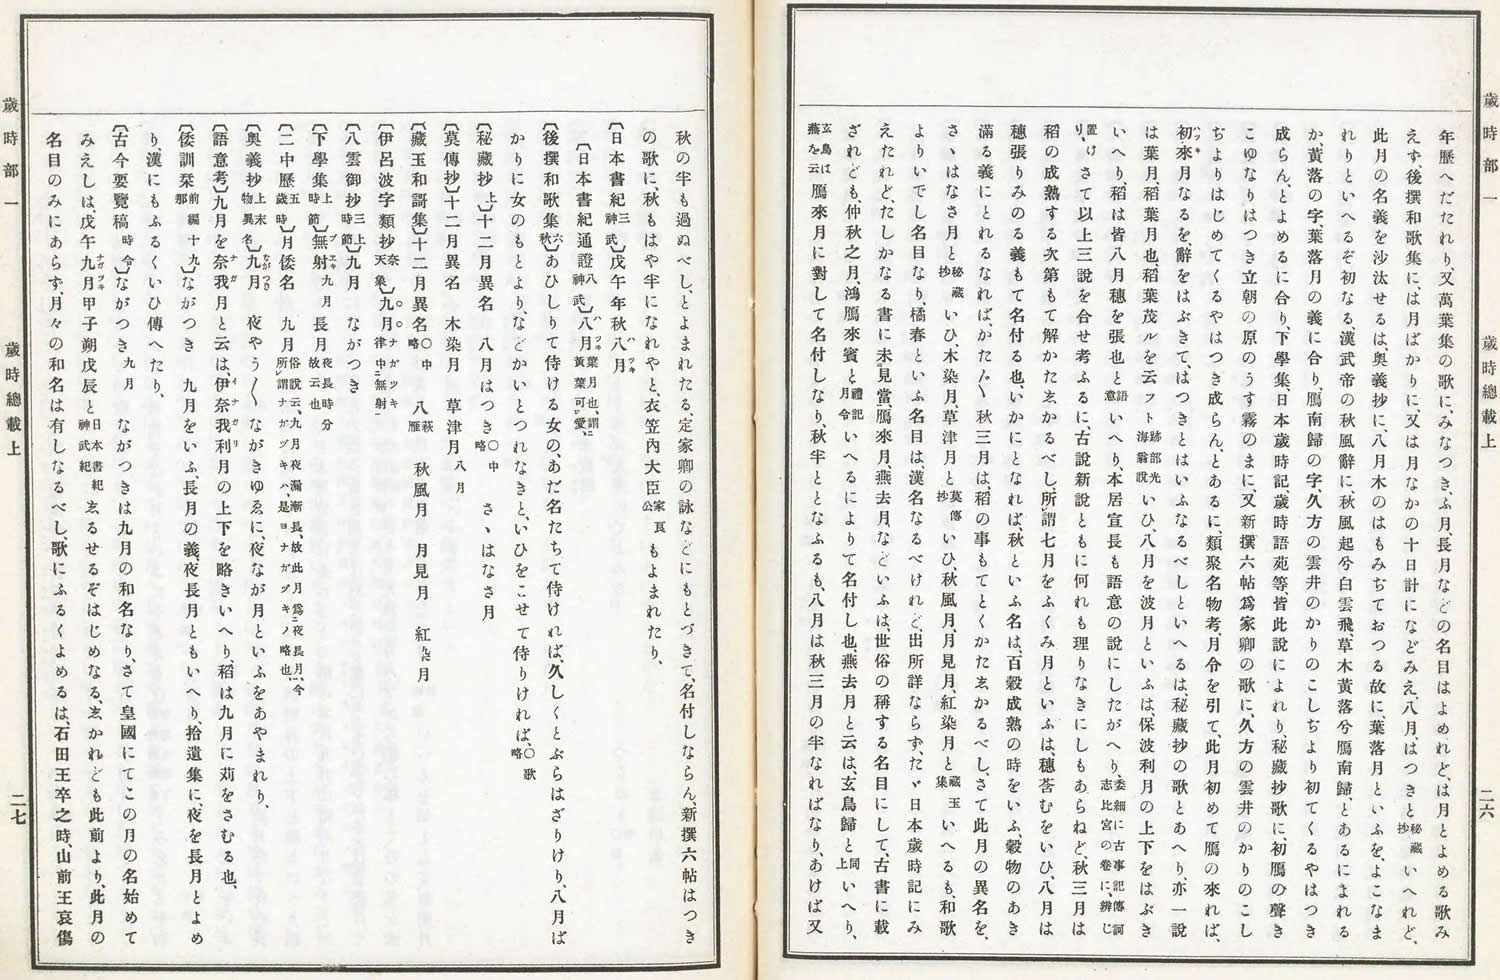 歲時部一
歲時總載上
二六
年歷へだたれり、又萬葉集の歌に、みなつき、ふ月、長月などの名目はよめれど、は月とよめる歌み
えず、後撰和歌集に、は月ばかりに、又は月なかの十日計になどみえ、八月、はつきと秘藏抄いへれど、
此月の名義を沙汰せるは、奧義抄に、八月木のはもみぢておつる故に、葉落月といふを、よこなま
れりといへるぞ初なる、漢武帝の秋風辭に秋風起兮白雲飛、草木黃落兮鴈南歸、とあるにまれる
か、黃落の字、葉落月の義に合り、鴈南歸の字、久方の雲井のかりのこしぢより初てくるやはつき
成らん、とよめるに合り、下學集、日本歲時記、歲時語苑等、皆此說によれり、秘藏抄歌に、初鴈の聲き
こゆなりはつき立朝の原のうす霧のまに、又新撰六帖爲家卿の歌に、久方の雲井のかりのこし
ぢよりはじめてくるやはつき成らん、とあるに、類聚名物考、月令を引て、此月初めて鴈の來れば、
初來月なるを、辭をはぶきて、はつきとはいふなるべしといへるは、秘藏抄の歌とあへり、亦一說
は葉月、稻葉月也、稻葉茂ルを云フト跡部光海翁說いひ、八月を波月といふは、保波利月の上下をはぶき
いへり、稻は皆八月穗を張也と語意いへり、本居宣長も語意の說にしたがへり、委細に古事記傳訶志比宮の卷に、辨じ
置けり、さて以上三說を合せ考ふるに、古說新說ともに何れも理りなきにしもあらねど、秋三月は
稻の成熟する次第もて解かた𛁈かるべし、所謂七月をふくみ月といふは、穗莟むをいひ、八月は
穗張りみのる義もて名付る也、いかにとなれば、秋といふ名は、百穀成熟の時をいふ、穀物のあき
滿る義にとれるなれば、かた〴〵秋三月は、稻の事もてとくかた𛁈かるべし、さて此月の異名を、
さゝはなさ月と秘藏抄いひ、木染月、草津月と莫傳抄いひ、秋風月、月見月、紅染月、と藏玉集いへるも、和歌
よりいでし名目なり、橘春といふ名目は、漢名なるべけれど、出所詳ならず、たゞ日本歲時記にみ
えたれど、たしかなる書に未見當、鴈來月、燕去月、などいふは、世俗の稱する名目にして、古書に載
ざれども、仲秋之月、鴻鴈來賓と禮記月令いへるによりて名付し也、燕去月と云は、玄鳥歸と同上いへり、
玄鳥は燕を云鴈來月に對して名付しなり、秋半ととなふるも、八月は秋三月の半なればなり、あけば又
秋の半も過ぬべし、とよまれたる、定家卿の詠などにもとづきて、名付しならん、新撰六帖はつき
の歌に、秋もはや半になれやと、衣笠內大臣家良公もよまれたり、
〔日本書紀三神武〕戊午年秋八月ハツキ
〔日本書紀通證八神武〕八月ハツキ葉月也、謂二黃葉可一レ愛、
〔後撰和歌集六秋〕あひしりて侍ける女の、あだ名たちて侍ければ、久しくとぶらはざりけり、八月ば
かりに女のもとより、などかいとつれなきと、いひをこせて侍りければ、〇歌略
〔秘藏抄上〕十二月異名　八月はつき〇中略　さゝはなさ月
〔莫傳抄〕十二月異名　木染月　草津月八月
〔藏玉和謌集〕十二月異名〇中略　八萩雁　秋風月　月見月　紅染月
〔伊呂波字類抄奈天象〕九月ナガツキ律中二無射一
〔八雲御抄三上時節〕九月　ながつき
〔下學集上時節〕無射ブエキ九月　長月夜長時分故云也
〔二中歷五歲時〕月倭名　九月俗說云、九月夜漏漸長、故此月爲二夜長月一、今所レ謂ナガヅキハ、是ヨナガヅキノ略也、
〔奧義抄上末物異名〕九月ながつき　夜やう〳〵ながきゆゑに、夜なが月といふをあやまれり、
〔語意考〕九月を奈我ナガ月と云は、伊奈我利イナガリ月の上下を略きいへり、稻は九月に苅をさむる也、
〔倭訓栞前編十九那〕ながつき　九月をいふ、長月の義、夜長月ともいへり、拾遺集に、夜を長月とよめ
り、漢にもふるくいひ傳へたり、
〔古今要覽稿時令〕ながつき九月　ながつきは九月の和名なり、さて皇國にてこの月の名始めて
みえしは、戊午九月ナガツキ甲子朔戊辰と日本書紀神武紀𛁈るせるぞはじめなる、𛁈かれども此前より、此月の
名目のみにあらず、月々の和名は有しなるべし、歌にふるくよめるは、石田王卒之時、山前王哀傷
歲時部一
歲時總載上
二七